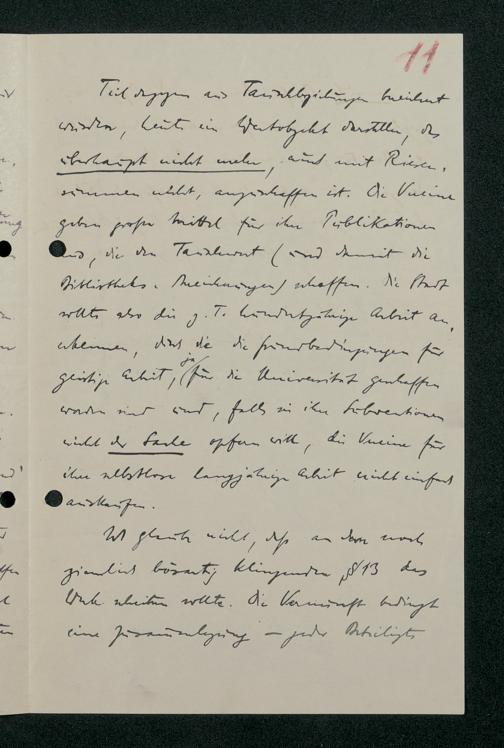 11
Teil dagegen aus Tauschbeziehungen bereichert
wurden, heute ein Wertobjekt darstellen, das
überhaupt nicht mehr, auch mit Riesen-
summen nicht, anzuschaffen ist. Die Vereine
geben große Mittel für ihre Publikationen
aus, die den Tauschwert (und damit die
Bibliotheks-Bereicherungen) schaffen. Die Stadt
sollte also die z. T. hundertjährige Arbeit an-
erkennen, durch die die Grundbedingungen für
geistige Arbeit, ja für die Universität geschaffen
worden sind und, falls sie ihre Subventionen
nicht der Sache opfern will, die Vereine für
ihre selbstlose langjährige Arbeit nicht einfach
auskaufen.
Ich glaube nicht, daß an dem noch
ziemlich bösartig klingenden §13 das
Werk scheitern sollte. Die Vernunft bedingt
eine Zusammenlegung – jeder Beteiligte